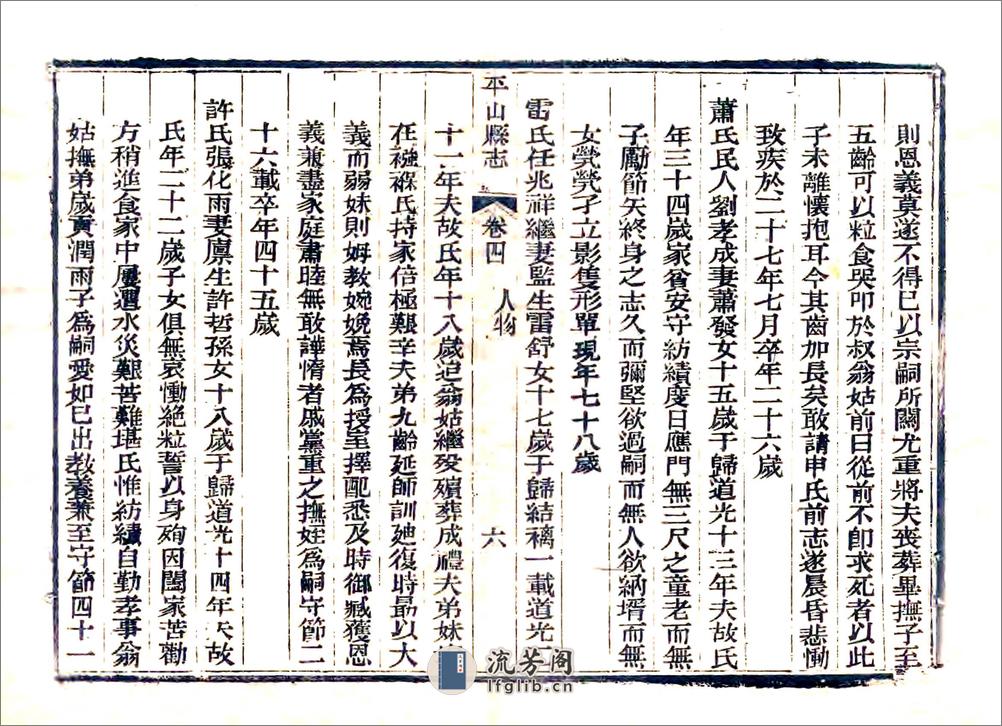 則恩義莫遂不得已以宗嗣所關尤重將夫喪葬畢撫子至
五齡可以粒食哭叩於叔翁姑前曰從前不卽求死者以此
子未離懷抱耳今其齒加長矣敢請申氏前志遂晨昏悲慟
致疾於二十七年七月卒年二十六歲
蕭氏民人劉孝成妻蕭發女十五歲于歸道光十三年夫故氏
年三十四歲家貧安守紡績度日應門無三尺之童老而無
子勵節矢終身之志久而彌堅欲過嗣而無人欲納壻而無
女煢煢孑立影隻形單現年七十八歲
平山縣志
卷四
人物
六
雷氏任兆祥繼妻監生雷舒女十七歲于歸結褵一載道光
十一年夫故氏年十八歲迨翁姑繼歿殯葬成禮夫弟妹
在襁褓氏持家倍極艱辛夫弟九齡延師訓廸復時勗以大
義而弱妹則姆教婉娩焉長爲授室擇配悉及時御臧獲恩
義兼盡家庭肅睦無敢譁惰者戚黨重之撫姪爲嗣守節二
十六載卒年四十五歲
許氏張化雨妻廪生許哲孫女十八歲于歸道光十四年夫故
氏年二十二歲子女俱無哀慟絕粒誓以身殉因闔家苦勸
方稍進食家中屢遭水災艱苦難堪氏惟紡績自勤孝事翁
姑撫弟成賓潤雨子爲嗣愛如已出教養兼至守節四十一
流芳阁
lfglib.cn